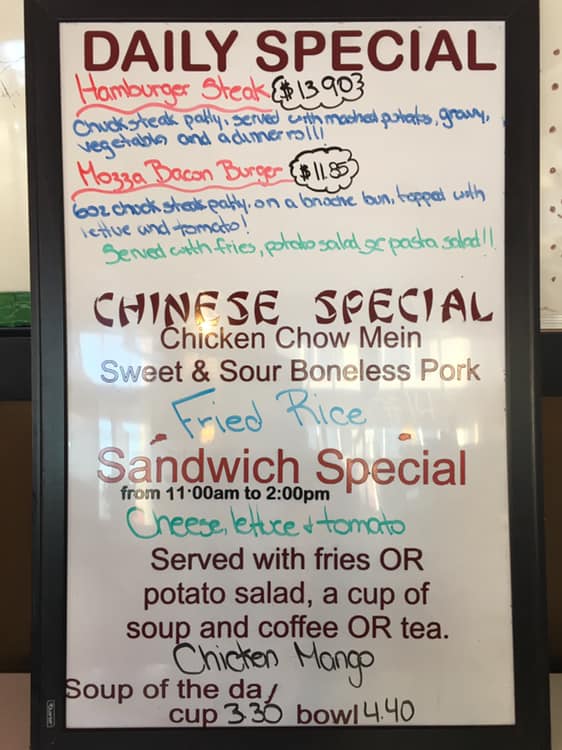 DAILY SPECIAL
Hamburger Steak $13.90
Chuck steak patty, served with mashed potatoes, gravy,
vegetables and a dinner roll!
Mozza Bacon Burger $11.85
6oz chuck steak patty, on a brioche bun, topped with
lettuce and tomato!
Served with fries, potato salad, or pasta salad!!
CHINESE SPECIAL
Chicken Chow Mein
Sweet & Sour Boneless Pork
Fried Rice
Sandwich Special
from 11:00am to 2:00pm
Cheese, lettuce & tomato
Served with fries OR
potato salad, a cup of
soup and coffee OR tea.
Chicken Mango
Soup of the day
cup 3.30 bowl 4.40